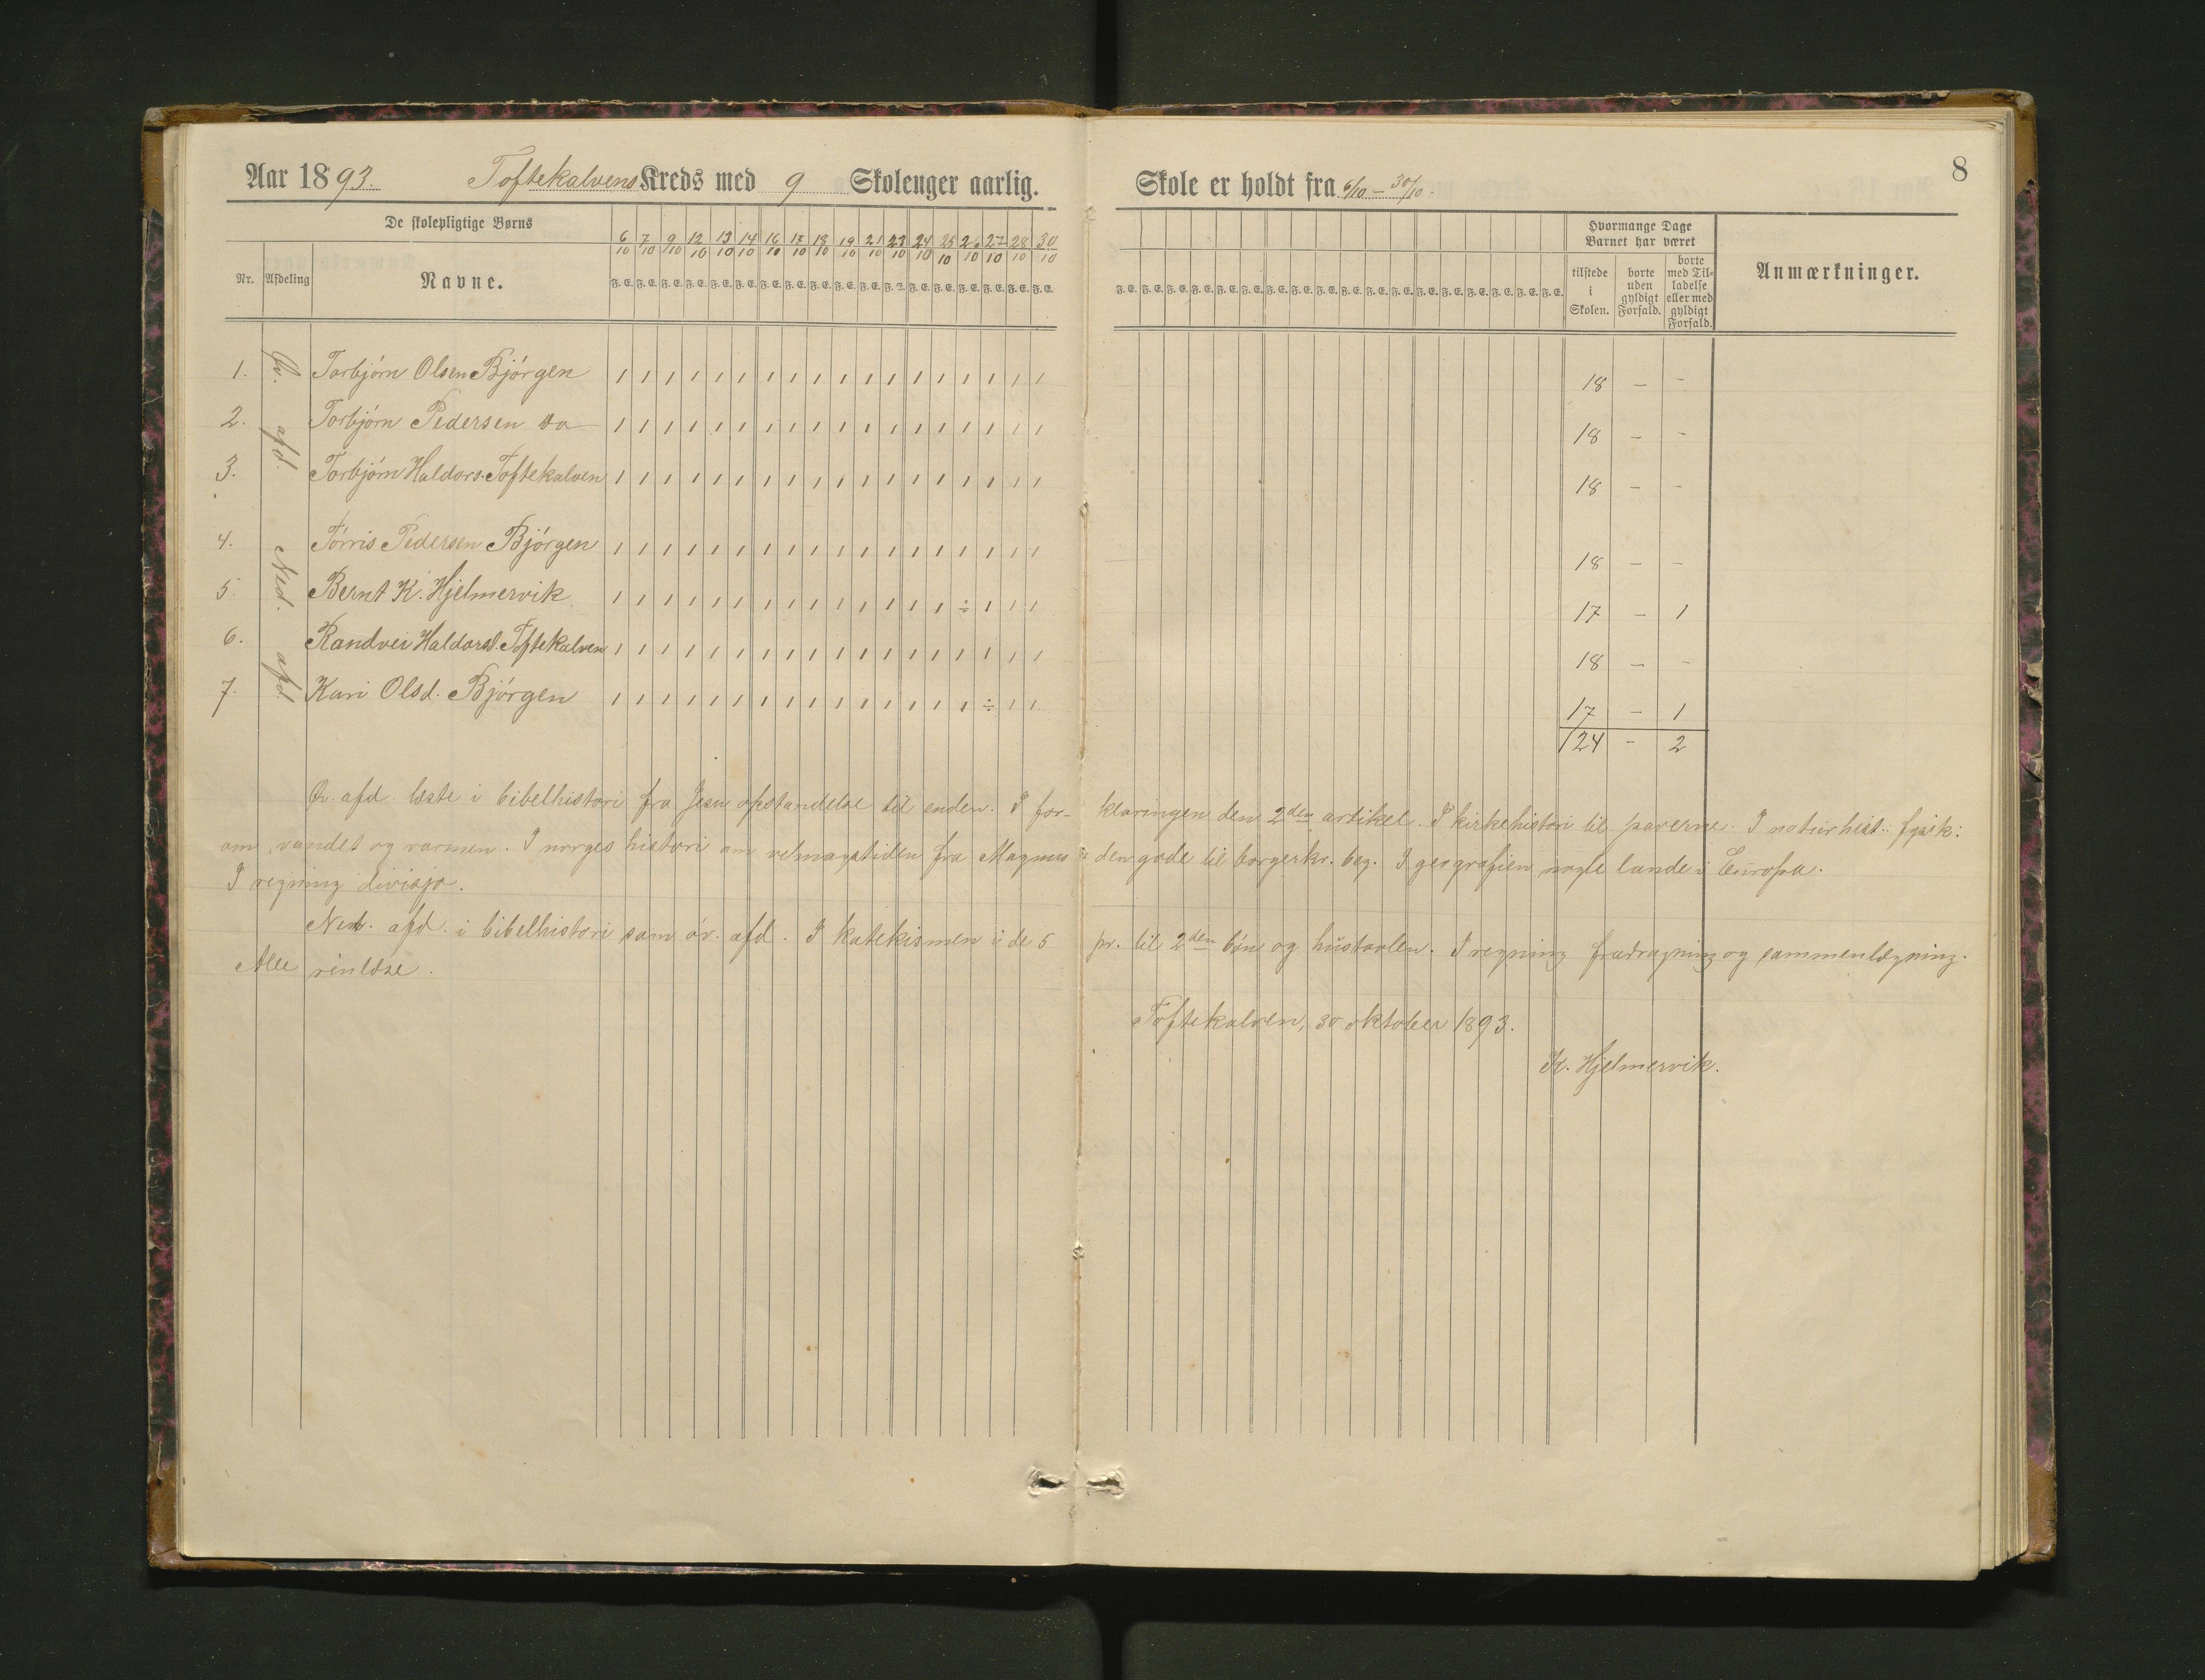 Aar 1893. Toftekalvens Kreds med 9 Skoleuger aarlig.
Skole er holdt fra 6/10 - 30/10.
8
De skolepligtige Børns
6/10 7/10 9/10 12/10 13/10 14/10 16/10 17/10 18/10 19/10 21/10 23/10 24/10 25/10 26/10 27/10 28/10 30/10
Hvormange Dage Barnet har været
Nr. Afdeling Navne. F. E. F. E. F. E. F. E. F. E. F. E. F. E. F. E. F. E. F. E. F. E. F. E. F. E. F. E. F. E. F. E. F. E. F. E.
F. E. F. E. F. E. F. E. F. E. F. E. F. E. F. E. F. E. F. E. F. E. F. E. F. E. F. E. F. E. F. E. F. E. F. E.
tilstede i Skolen. borte uden gyldigt Forfald. borte med Tilladelse eller med gyldigt Forfald. Anmærkninger.
Øv. afd.
1. Torbjørn Olsen Bjørgen 1 1 1 1 1 1 1 1 1 1 1 1 1 1 1 1 1 1 18 - -
2. Torbjørn Pedersen do 1 1 1 1 1 1 1 1 1 1 1 1 1 1 1 1 1 1 18 - -
3. Torbjørn Haldors. Toftekalven 1 1 1 1 1 1 1 1 1 1 1 1 1 1 1 1 1 1 18 - -
Ned. afd.
4. Tørris Pedersen Bjørgen 1 1 1 1 1 1 1 1 1 1 1 1 1 1 1 1 1 1 18 - -
5. Bernt K. Hjelmervik 1 1 1 1 1 1 1 1 1 1 1 1 1 1 ÷ 1 1 1 17 - 1
6. Randvei Haldorsd. Toftekalven 1 1 1 1 1 1 1 1 1 1 1 1 1 1 1 1 1 1 18 - -
7. Kari Olsd. Bjørgen 1 1 1 1 1 1 1 1 1 1 1 1 1 1 1 ÷ 1 1 17 - 1
124 - 2
Øv. afd. læste i bibelhistori fra Jesu opstandelse til enden. I forklaringen den 2den artikel. I kirkehistori til paverne. I naturhist.. fysik:
om vandet og varmen. I norges histori om velmagstiden fra Magnus den gode til borgerkr. beg. I geografien nogle lande i Europa.
I regning divisjo.
Ned. afd. i bibelhistori som øv. afd. I katekismen i de 5 pr. til 2den bøn og hustavlen. I regning fradragning og sammenlægning.
Alle rinlæse.
Toftekalven, 30 oktober 1893.
K. Hjelmervik.